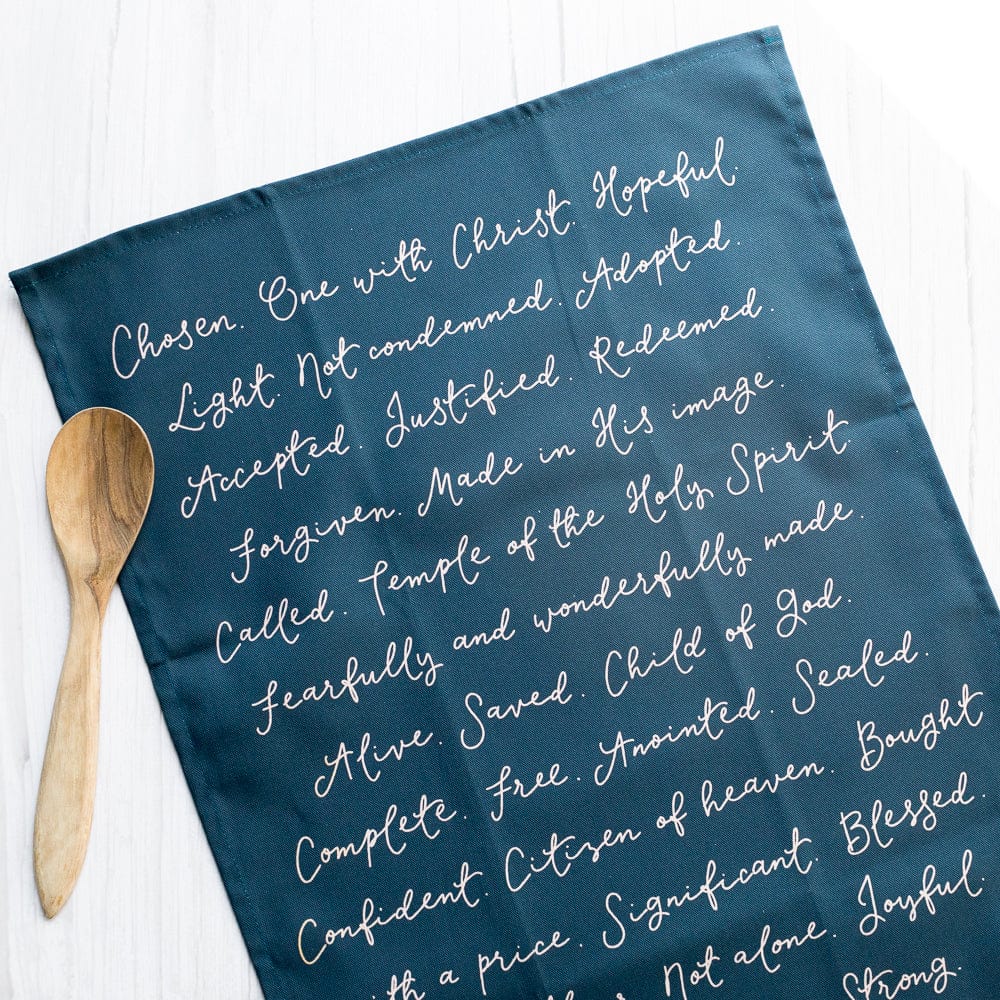 Chosen. One with Christ. Hopeful.
Light. Not condemned. Adopted.
Accepted. Justified. Redeemed.
Forgiven. Made in His image.
Called. Temple of the Holy Spirit.
Fearfully and wonderfully made.
Alive. Saved. Child of God.
Complete. Free. Anointed. Sealed.
Confident. Citizen of heaven. Bought
a price. Significant. Blessed.
Not alone. Joyful.
Strong.